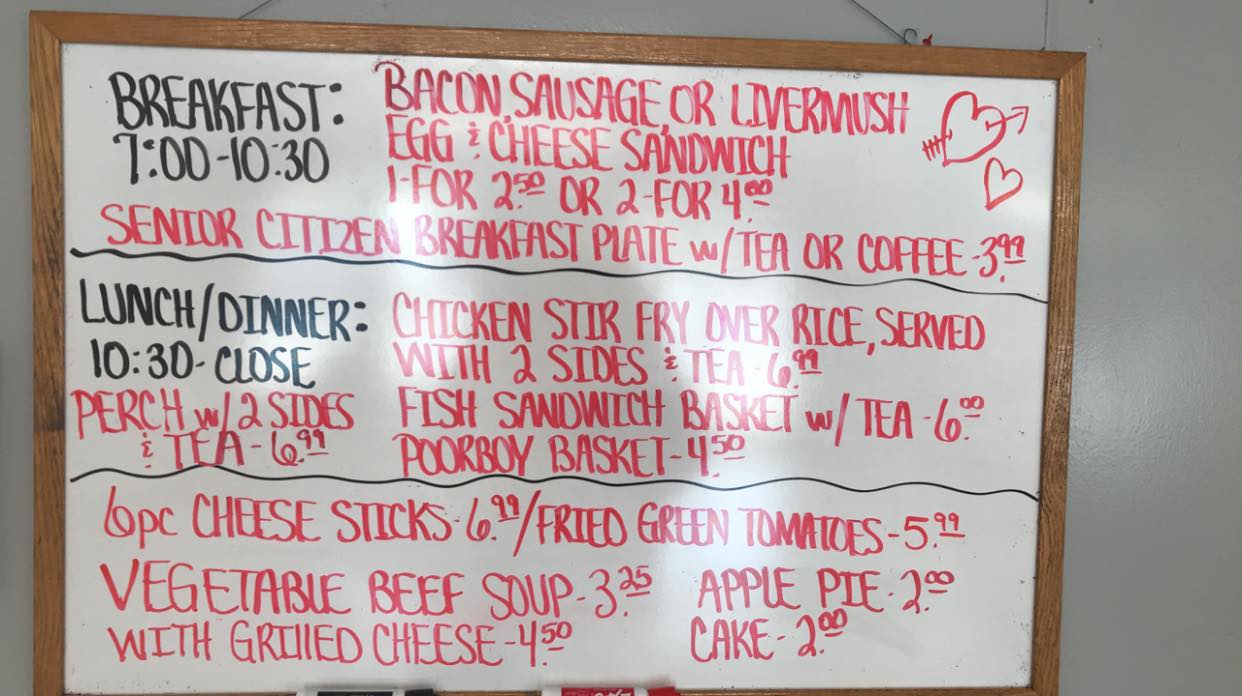 BREAKFAST:
7:00-10:30
BACON, SAUSAGE, OR LIVERMUSH
EGG & CHEESE SANDWICH
1-FOR 2.50 OR 2-FOR 4.00
SENIOR CITIZEN BREAKFAST PLATE w/TEA OR COFFEE-3.99
LUNCH/DINNER:
10:30-CLOSE
CHICKEN STIR FRY OVER RICE, SERVED
WITH 2 SIDES & TEA-6.99
PERCH w/2 SIDES
& TEA-6.99
FISH SANDWICH BASKET w/ TEA-6.00
POORBOY BASKET-4.50
6pc CHEESE STICKS-6.99/FRIED GREEN TOMATOES-5.99
VEGETABLE BEEF SOUP-3.25
WITH GRILLED CHEESE-4.50
APPLE PIE-2.00
CAKE-2.00